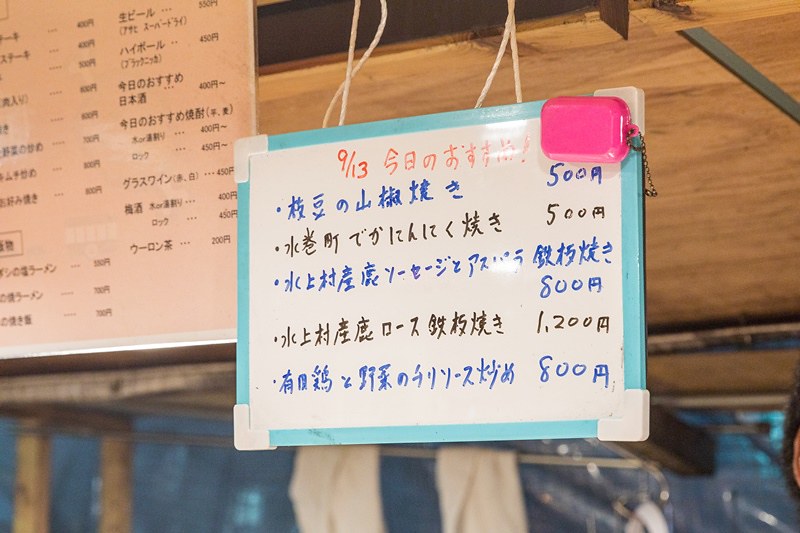 ステーキ
400円
ステーキ
500円
(肉入り)
600円
800円
野菜の炒め
700円
キムチ炒め
800円
お好み焼き
800円
の塩ラーメン
550円
の焼ラーメン
700円
の焼き飯
700円
生ビール
550円
(アサヒ スーパードライ)
ハイボール … 450円
(ブラックニッカ)
今日のおすすめ
日本酒 … 400円～
今日のおすすめ焼酎(芋、麦)
水or湯割り … 400円～
ロック … 450円～
グラスワイン(赤、白) … 450円
梅酒 水or湯割り … 400円
ロック … 450円
ウーロン茶 … 200円
9/13 今日のおすすめ!
・枝豆の山椒焼き 500円
・水巻町でかにんにく焼き 500円
・水上村産鹿ソーセージとアスパラ鉄板焼き
800円
・水上村産鹿ロース鉄板焼き 1,200円
・有田鶏と野菜のチリソース炒め 800円